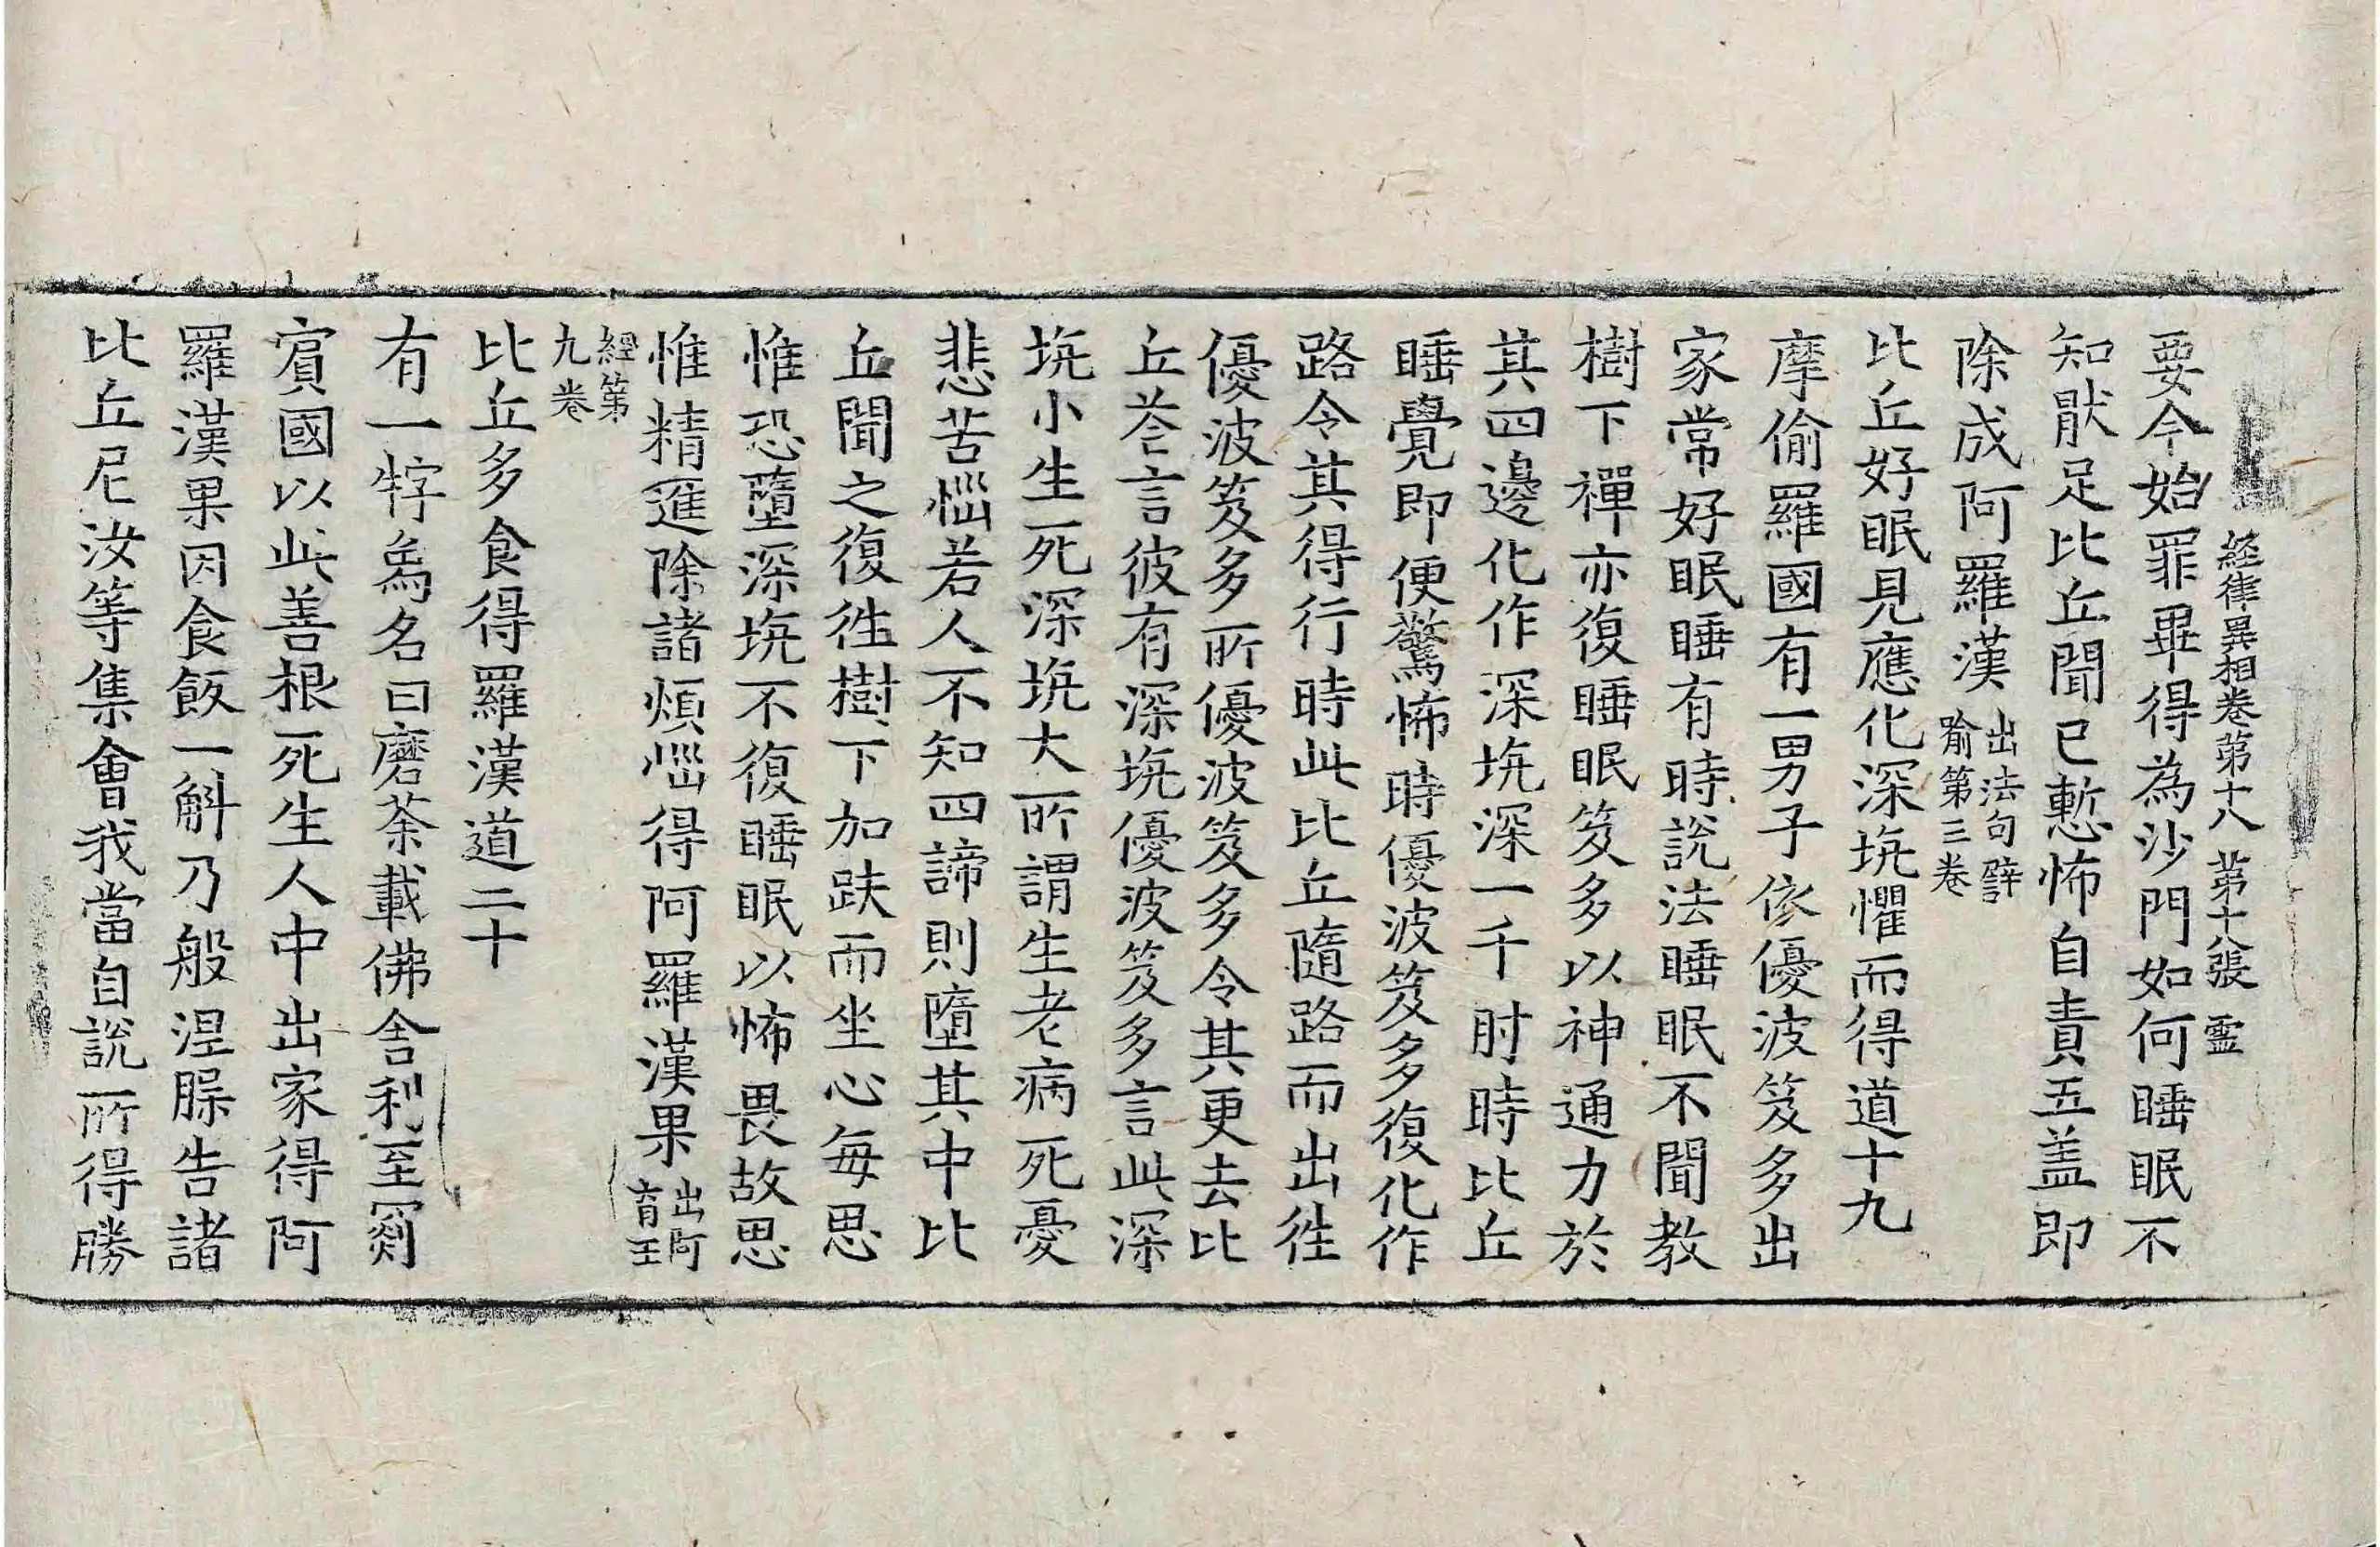 經律異相卷第十八 第十八張 靈
要令始罪畢得為沙門如何睡眠不
知猒足比丘聞已慙怖自責五盖即
除成阿羅漢 出法句譬
喻第三卷
比丘好眠見應化深坑懼而得道十九
摩偷羅國有一男子依優波笈多出
家常好眠睡有時說法睡眠不聞教
樹下禪亦復睡眠笈多以神通力於
其四邊化作深坑深一千肘時比丘
睡覺即便驚怖時優波笈多復化作
路令其得行時此比丘隨路而出徃
優波笈多所優波笈多令其更去比
丘荅言彼有深坑優波笈多言此深
坑小生死深坑大所謂生老病死憂
悲苦惱若人不知四諦則墮其中比
丘聞之復徃樹下加趺而坐心每思
惟恐墮深坑不復睡眠以怖畏故思
惟精進除諸煩惱得阿羅漢果 出阿
育王
經第
九卷
比丘多食得羅漢道二十
有一牸爲名曰磨荼載佛舍利至罽
賔國以此善根死生人中出家得阿
羅漢果因食飯一斛乃般涅槃告諸
比丘尼汝等集會我當自說所得勝